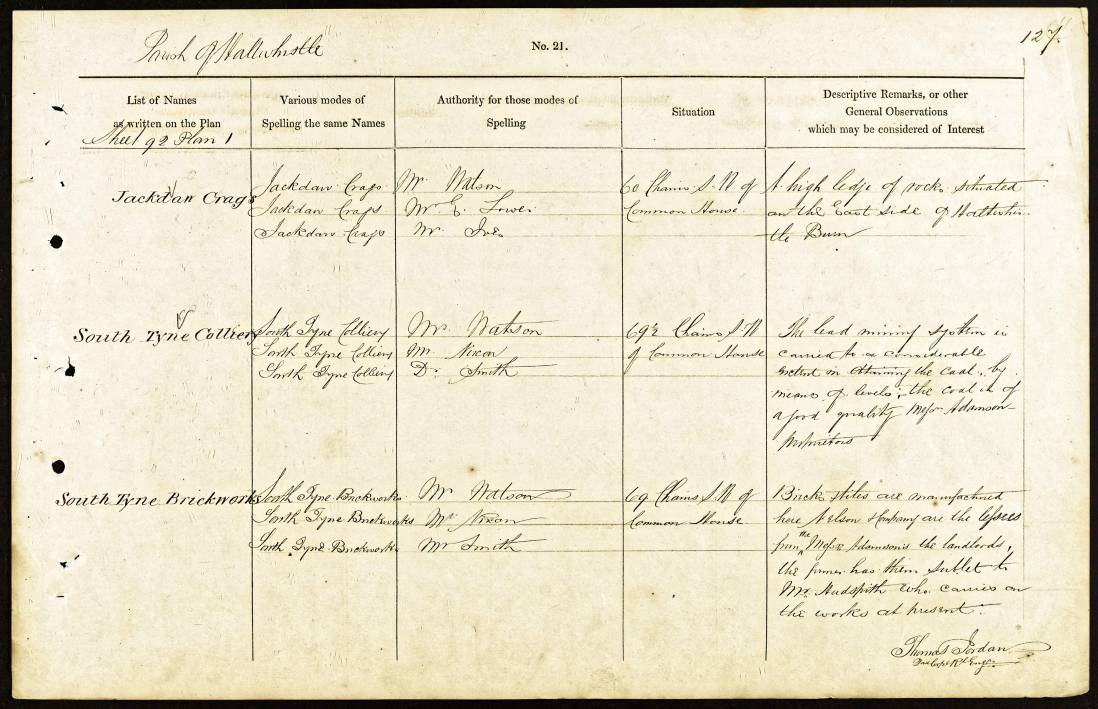 Parish of Haltwhistle
No. 21.
127.
List of Names
as written on the Plan
Sheet 92 Plan 1
Various modes of
Spelling the same Names
Authority for those modes of
Spelling
Situation
Descriptive Remarks, or other
General Observations
which may be considered of Interest
Jackdaw Crags
Jackdaw Crags
Jackdaw Crags
Jackdaw Crags
Mr. Watson
Mr. E. Lowes
Mr. Ives
60 Chains S.W of
Common House
A high ledge of rocks situated
on the East side of Haltwhis-
tle Burn
South Tyne Colliery
South Tyne Colliery
South Tyne Colliery
South Tyne Colliery
Mr. Watson
Mr. Nixon
Dr. Smith
69½ Chains S.W
of Common House
The lead mining system is
carried to a considerable
extent in attaining the coal, by
means of levels, the coal is of
a good quality Messrs Adamson
proprietors
South Tyne Brickworks
South Tyne Brickworks
South Tyne Brickworks
South Tyne Brickworks
Mr Watson
Mr Nixon
Mr Smith
69 Chains S.W of
Common House
Bricks & tiles are manufactured
here Nelson & Company are the lessees
from the Messrs Adamson's the landlords,
the former has them sublet to
Mr. Hudspith who carries on
the works at present.
Thomas Jordan
2nd Corpl Rl Engrs